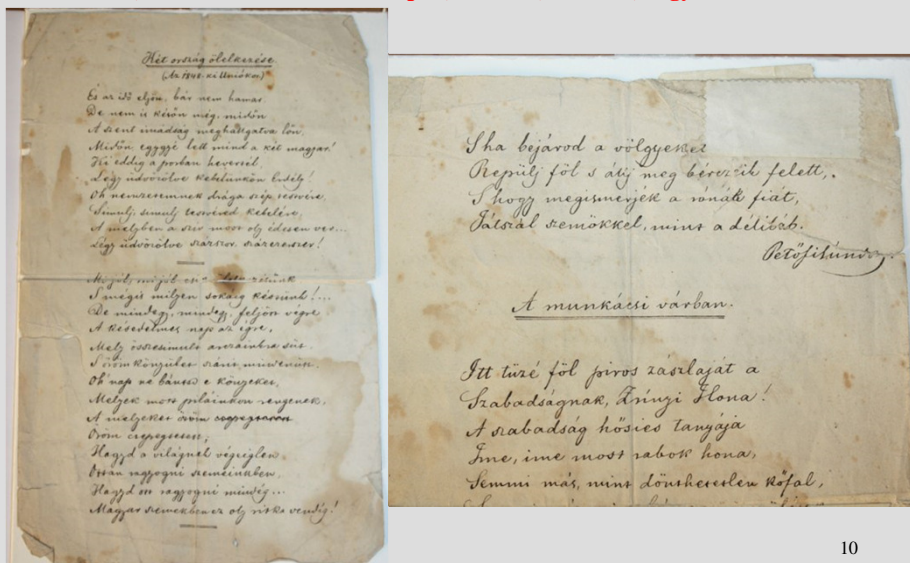 Két ország ölelkezése
(Az 1848-ki Uniókor)
És az idő eljön, bár nem hamar
De nem is későn még, midőn
A szent imádság meghallgatva lőn,
Midőn eggyé lett mind a két magyar!
Ki eddig a porban hevertél,
Légy üdvözölve keblünkön Erdély!
Oh nemzetemnek drága szép testvére
Simulj, simulj testvéred kebelére,
A melyben a szív most oly édesen ver...
Légy üdvözölve százszor, százezerszer!
Mi jól, mi jól
S mégis milyen sokáig késtünk!...
De mindegy, mindegy, feljön végre
A késedelmes nap az égre,
Mely összesimuló arczainkra süt
S örömkönyüket szárít mindenütt.
Oh nap ne bántsd e könyeket,
Melyek most piláinkon rengenek,
A melyeket öröm csepegtetett
Öröm csepegtetett,
Hagyd a világnak végeiglen
Ottan ragyogni szemeinkben,
Hagyd ott ragyogni mindég...
Magyar szemekben ez oly ritka vendég!
S ha bejárod a völgyeket
Repülj föl s állj meg bérczeik felett,
S hogy megismerjék a rónák fiát,
Játszál szemökkel, mint a délibáb.
Petőfi Sándor
A munkácsi várban.
Itt tűzé föl piros zászlaját a
Szabadságnak, Zrínyi Ilona!
A szabadság hősies tanyája
Íme, íme most rabok hona,
Semmi más, mint dönthetetlen kőfal,
10